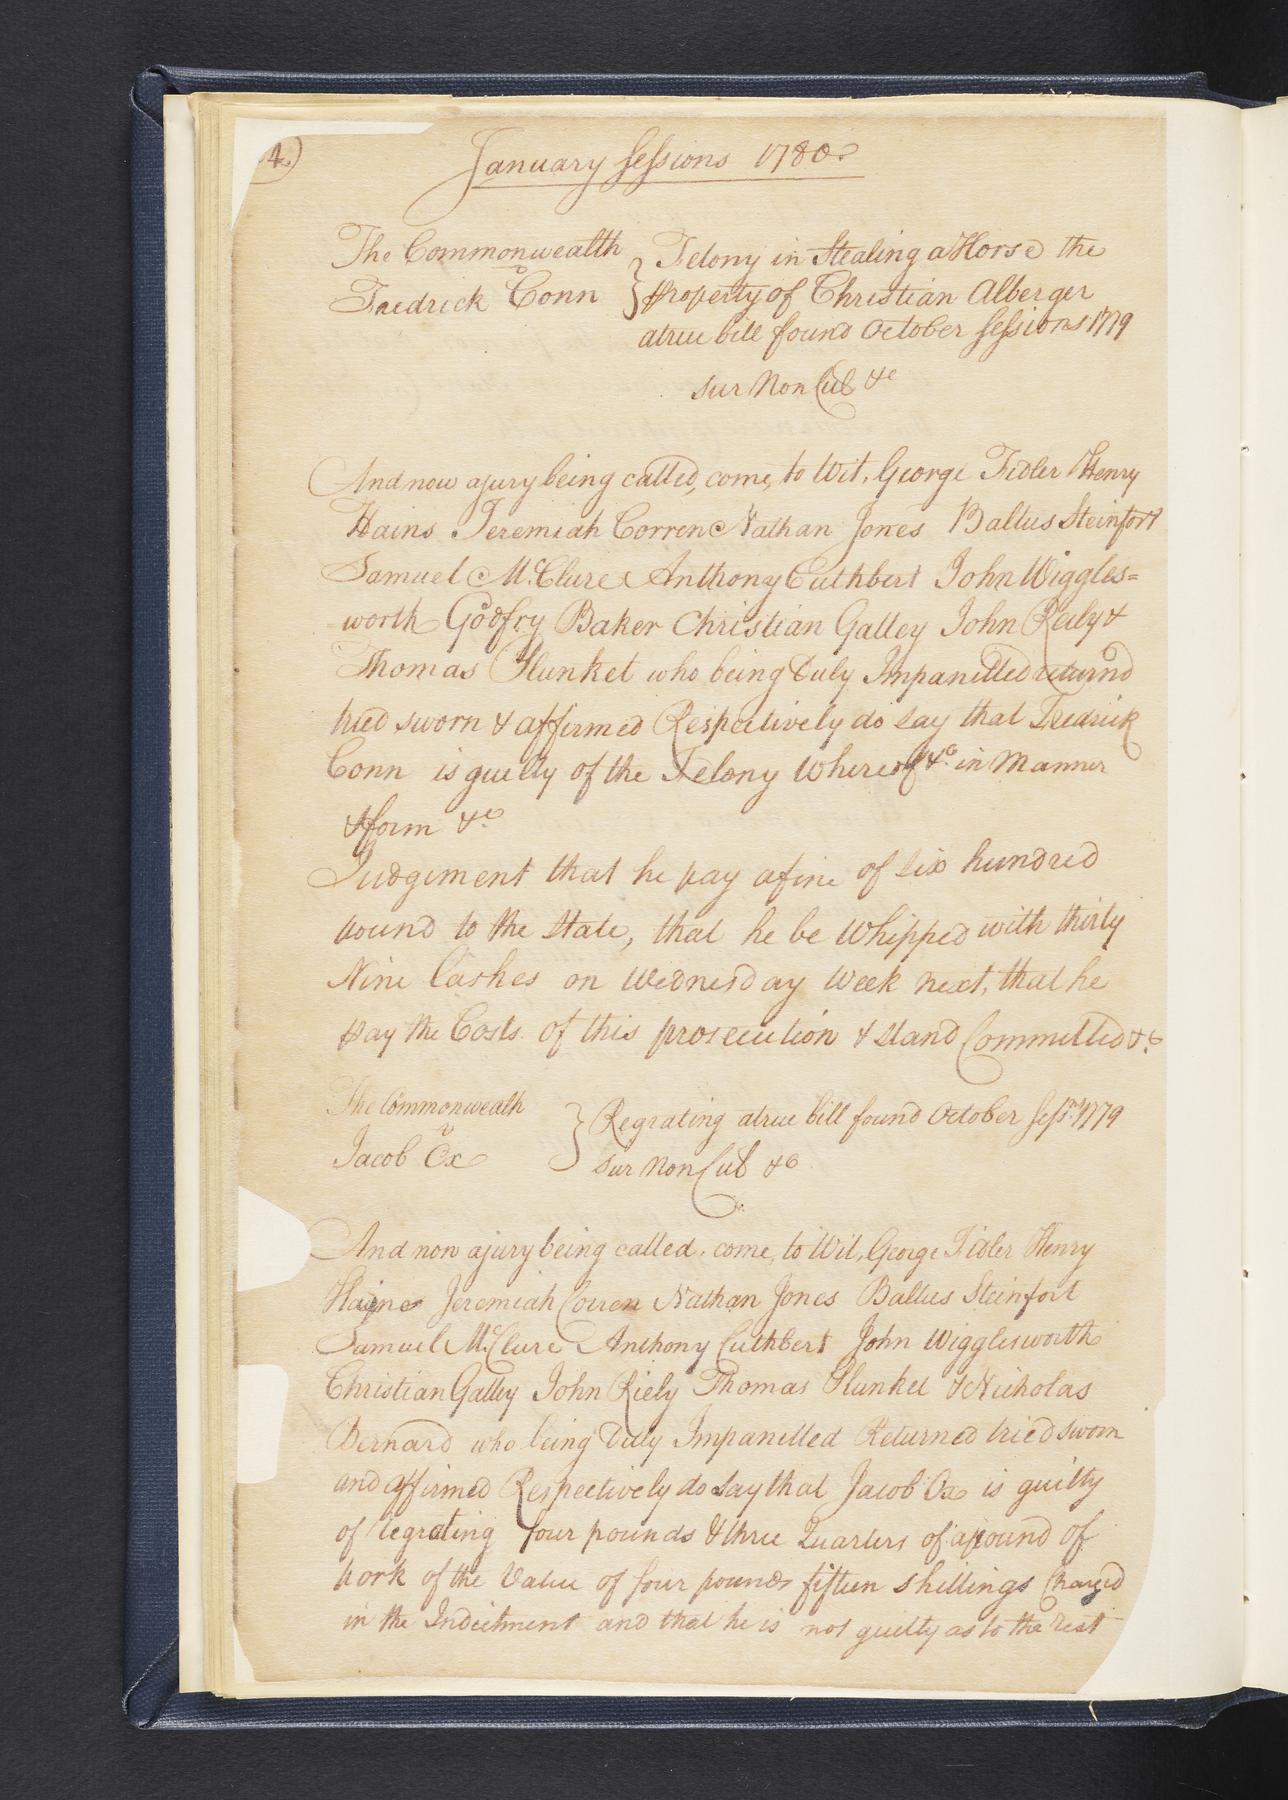 4.)
January Sessions 1780.
The Commonwealth } Felony in Stealing a Horse the
v
Fredrick Conn } property of Christian Alberger
a true bill found October Sessions 1779
Sur Non Cul &c
And now a jury being called, come, to Wit, George Fidler Henry
Hains Jeremiah Corren Nathan Jones Baltus Steinfort
Samuel McClure Anthony Cuthbert John Wiggles=
worth Godfry Baker Christian Galley John Reily &
Thomas Plunket who being Duly Impanelled return'd
tried sworn & affirmed Respectively do say that Fredrick
Conn is guilty of the Felony Whereof &c. in Manner
& form &c.
Judgement that he pay a fine of six hundred
pound to the State, that he be Whipped with thirty
Nine Lashes on Wednesday Week next, that he
pay the Costs of this prosecution & stand Committed &c.
The Commonwealth } Regrating a true bill found October Sessns. 1779
v
Jacob Ox } Sur Non Cul &c
And now a jury being called, come, to Wit, George Fidler Henry
Hains Jeremiah Corren Nathan Jones Baltus Steinfort
Samuel McClure Anthony Cuthbert John Wigglesworth
Christian Galley John Riely Thomas Plunket & Nicholas
Bernard who being Duly Impanelled Returned tried sworn
and affirmed Respectively do say that Jacob Ox is guilty
of regrating four pounds & three Quarters of a pound of
pork of the Value of four pounds fifteen shillings Charged
in the Indictment and that he is not guilty as to the rest